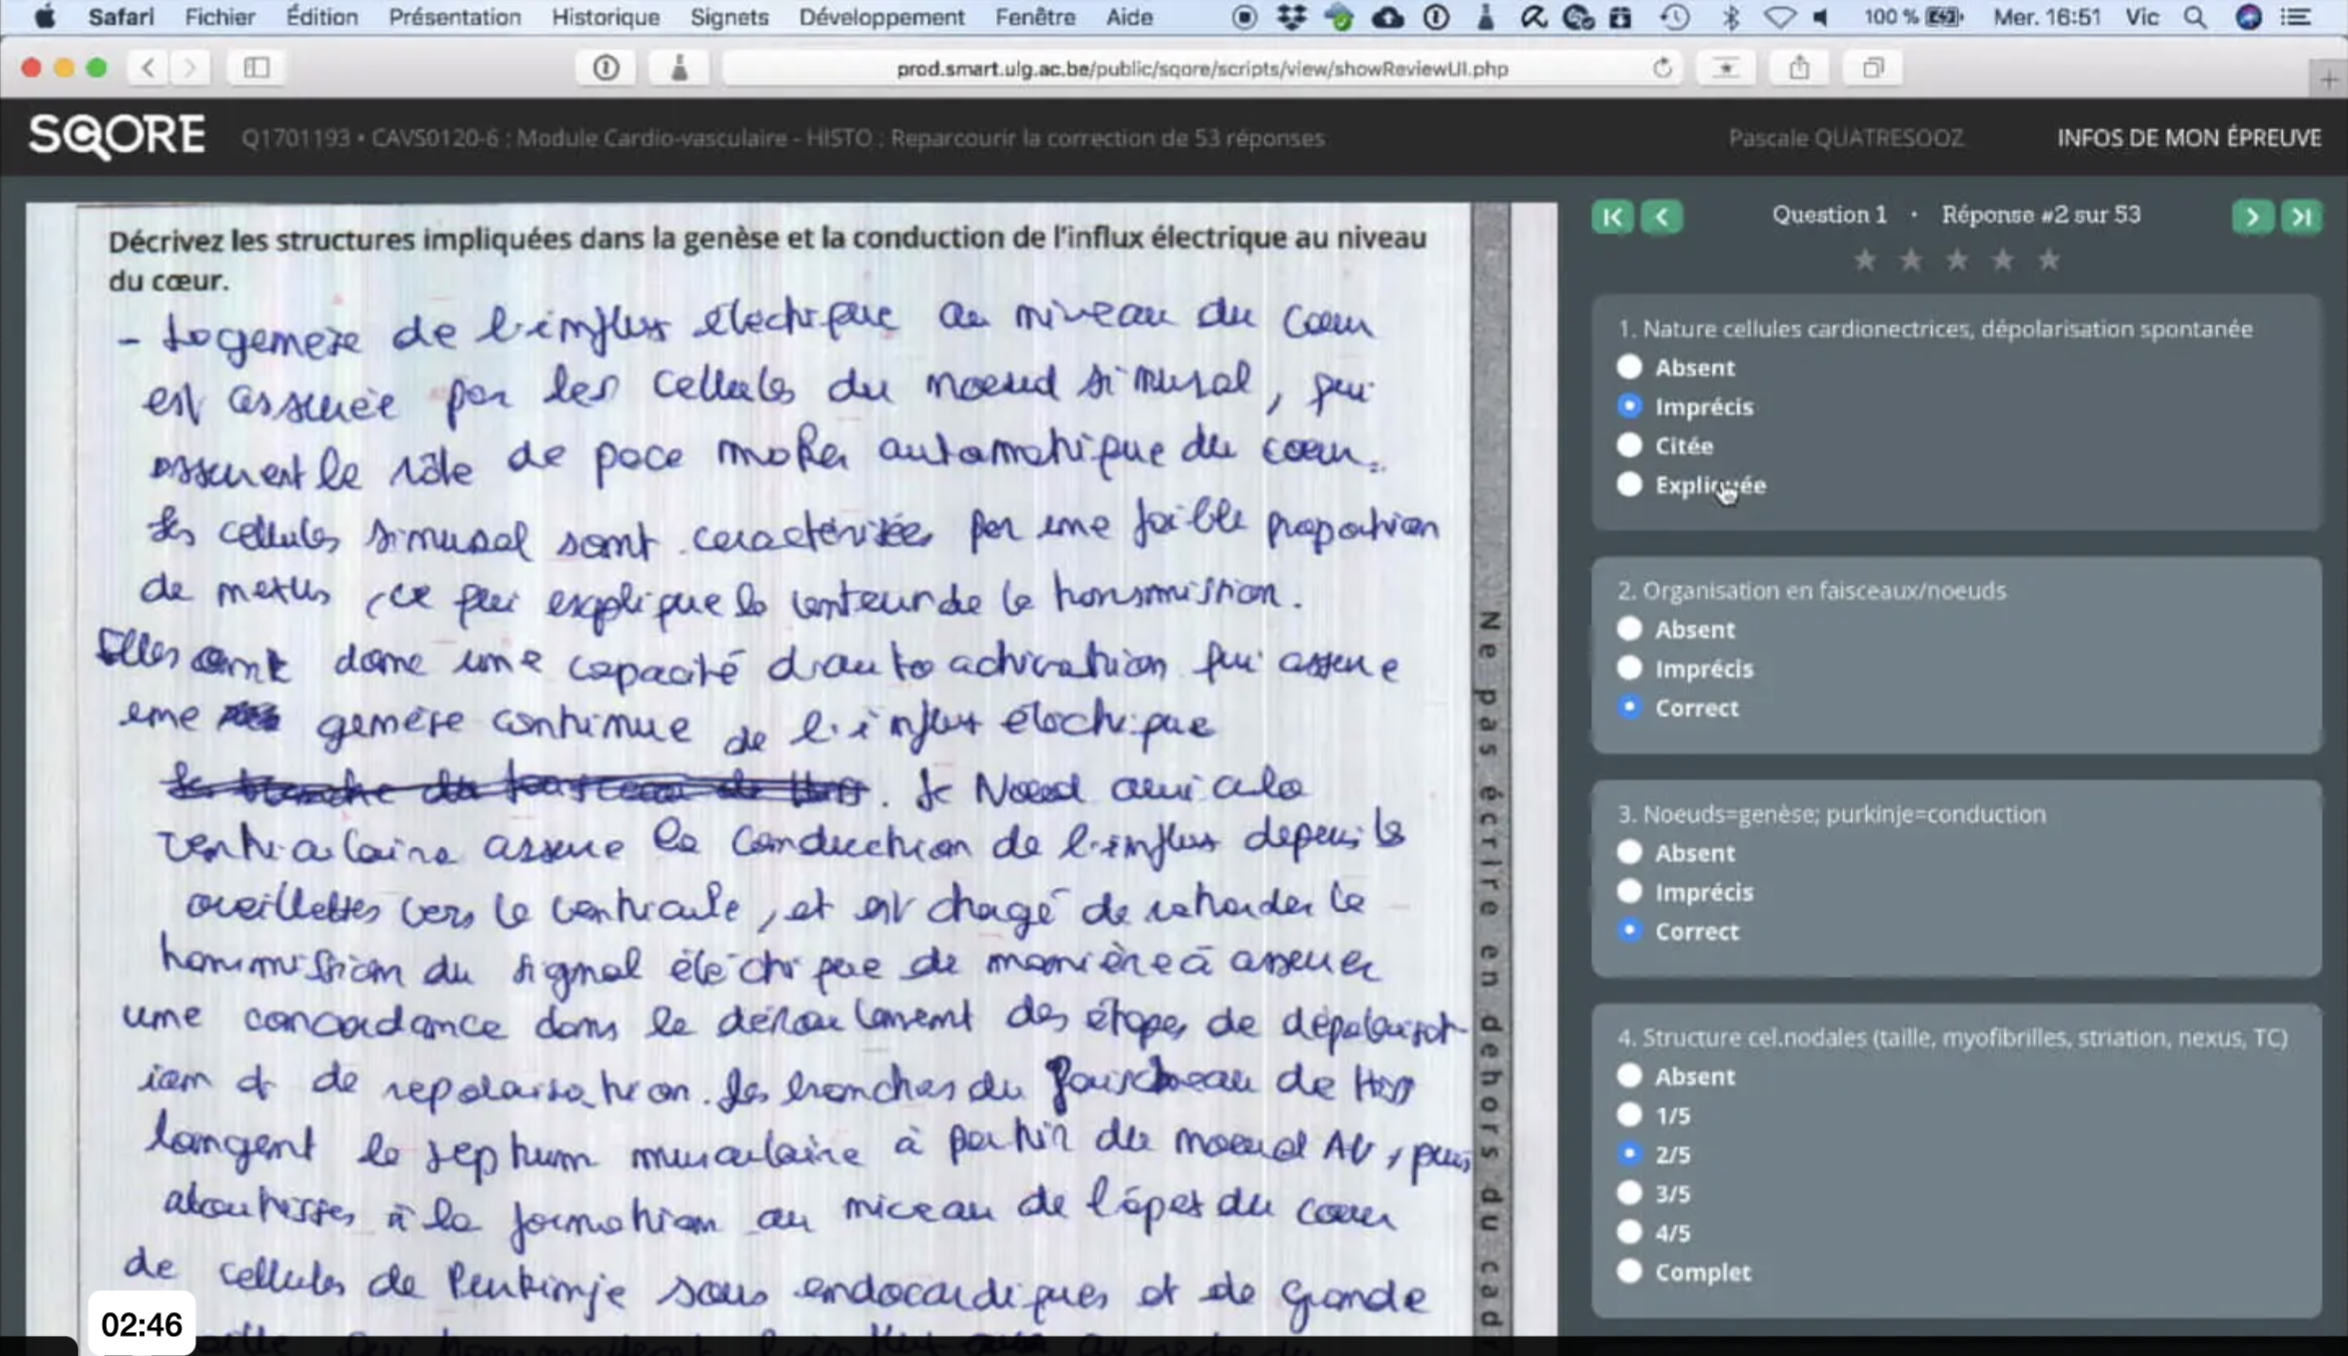 Safari Fichier Édition Présentation Historique Signets Développement Fenêtre Aide 100 % Mer. 16:51 Vic
prod.smart.ulg.ac.be/public/sqore/scripts/view/showReviewUI.php
SQORE Q1701193 • CAVS0120-6 : Module Cardio-vasculaire - HISTO : Reparcourir la correction de 53 réponses Pascale QUATRESOOZ INFOS DE MON ÉPREUVE
Décrivez les structures impliquées dans la genèse et la conduction de l'influx électrique au niveau
du cœur.
- La genèse de l'influx électrique au niveau du cœur
est assurée par les cellules du noeud sinusal, qui
assurent le rôle de pace maker automatique du cœur.
Les cellules sinusal sont caractérisées par une faible proportion
de nexus, ce qui explique la lenteur de la transmission.
Elles ont donc une capacité d'auto activation qui assure
une genèse continue de l'influx électrique
. Le Noeud auriculo
ventriculaire assure la conduction de l'influx depuis les
oreillettes vers le ventricule, et est chargé de retarder la
transmission du signal électrique de manière à assurer
une concordance dans le déroulement des étapes de dépolarisat-
ion et de repolarisation. Les branches du faisceau de Hiss
longent le septum musculaire à partir du noeud AV, puis
aboutisses à la formation au niveau de l'apex du cœur
de cellules de Purkinje sous endocardiques et de grande
Ne pas écrire en dehors du cad
02:46
Question 1 · Réponse #2 sur 53
1. Nature cellules cardionectrices, dépolarisation spontanée
Absent
Imprécis
Citée
Expliquée
2. Organisation en faisceaux/noeuds
Absent
Imprécis
Correct
3. Noeuds=genèse; purkinje=conduction
Absent
Imprécis
Correct
4. Structure cel.nodales (taille, myofibrilles, striation, nexus, TC)
Absent
1/5
2/5
3/5
4/5
Complet